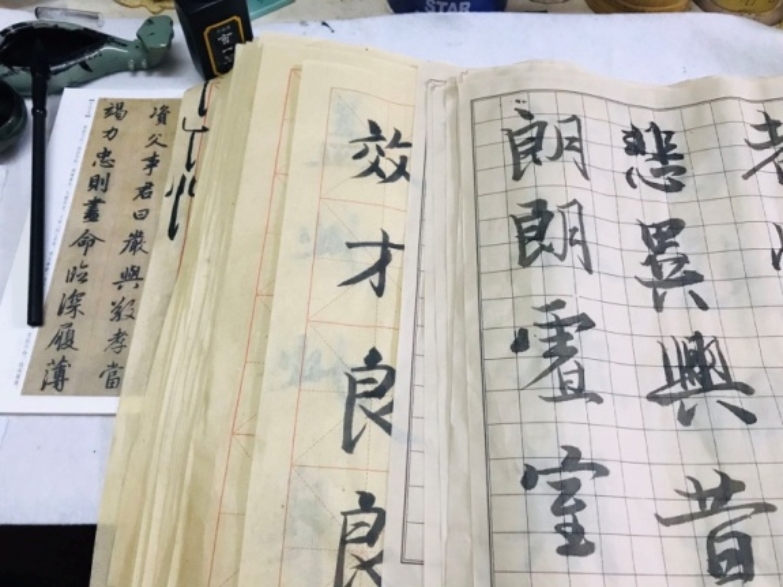 STAR
悲異興昔
朗朗虛室
效才良良
資父事君曰嚴與敬孝當
竭力忠則盡命臨深履薄